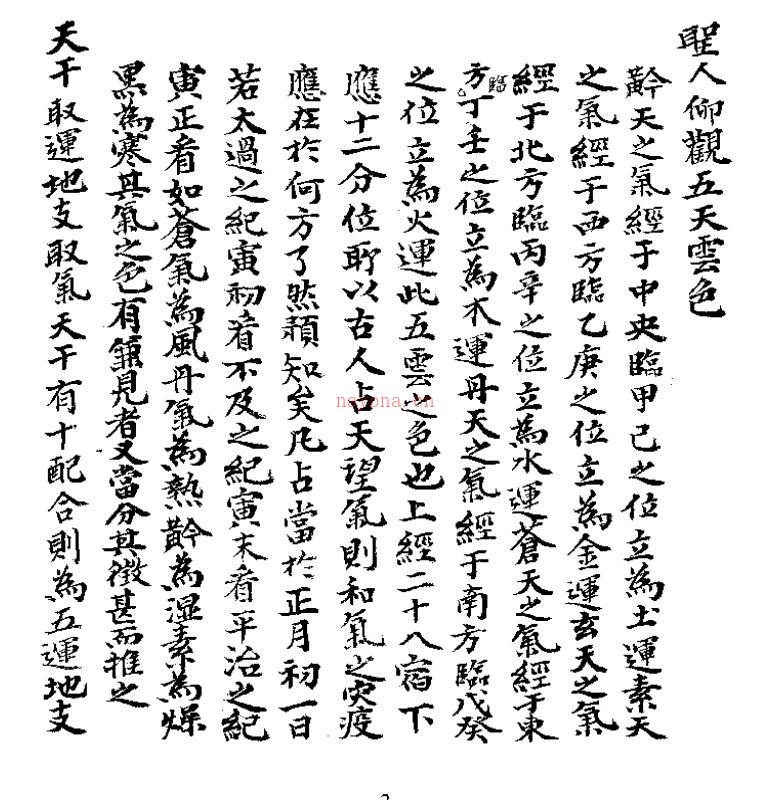 聖人仰觀五天雲色
黅天之氣經于中央臨甲己之位立為土運素天
之氣經于西方臨乙庚之位立為金運玄天之氣
經于北方臨丙辛之位立為水運蒼天之氣經于東
方臨丁壬之位立為木運丹天之氣經于南方臨戊癸
之位立為火運此五雲之色也上經二十八宿下
應十二分位所以古人占天望氣則和氣之灾疫
應在於何方了然預知矣凡占當於正月初一日
若太過之紀寅初看不及之紀寅末看平治之紀
寅正看如蒼氣為風丹氣為熱黅為湿素為燥
黑為寒其氣之色有兼見者又當分其微甚而推之
天干取運地支取氣天干有十配合則為五運地支
nayona.cn
2